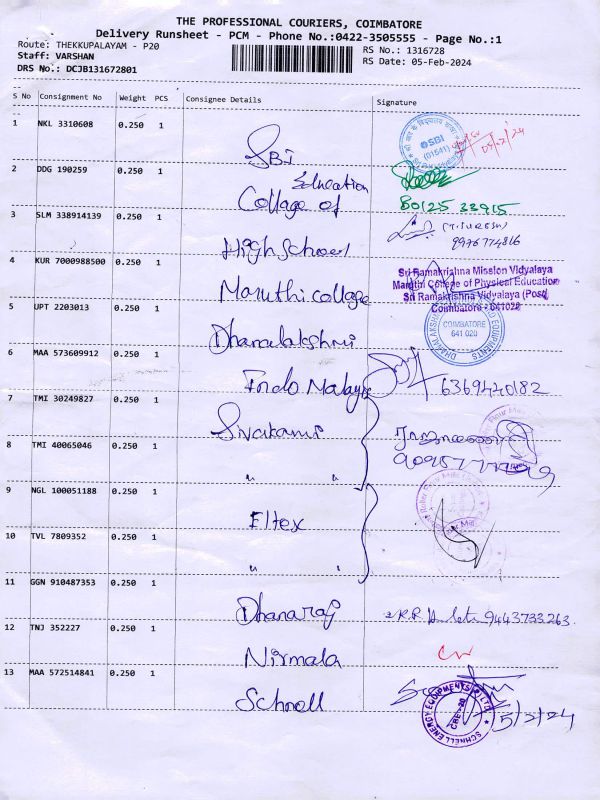 THE PROFESSIONAL COURIERS, COIMBATORE
Delivery Runsheet - PCM - Phone No.:0422-3505555 - Page No.:1
Route: THEKKUPALAYAM - P20
RS No.: 1316728
Staff: VARSHAN
RS Date: 05-Feb-2024
DRS No.: DCJB131672801
S No Consignment No Weight PCS Consignee Details Signature
1 NKL 3310608 0.250 1 SBI
SBI
(01541)
05/02/24
2 DDG 190259 0.250 1 Education
Collage of
80125 33915
3 SLM 338914139 0.250 1 High school
(T. SURESH)
9976774816
4 KUR 7000988500 0.250 1 Maruthi collage
Sri Ramakrishna Mission Vidyalaya
Maruthi College of Physical Education
Sri Ramakrishna Vidyalaya (Post)
Coimbatore - 641020
5 UPT 2203013 0.250 1 Dhanalakshmi
COIMBATORE
641 020
6 MAA 573609912 0.250 1 Indo Malayie
6369440182
7 TMI 30249827 0.250 1 Sivakami
8 TMI 40065046 0.250 1 " "
9 NGL 100051188 0.250 1 Eltex
10 TVL 7809352 0.250 1 " "
11 GGN 910487353 0.250 1 Dhanaraj
9443733263
12 TNJ 352227 0.250 1 Nirmala
13 MAA 572514841 0.250 1 Schnell
SCHNELL ENERGY EQUIPMENTS (P) LTD
CBE-20
5/2/24